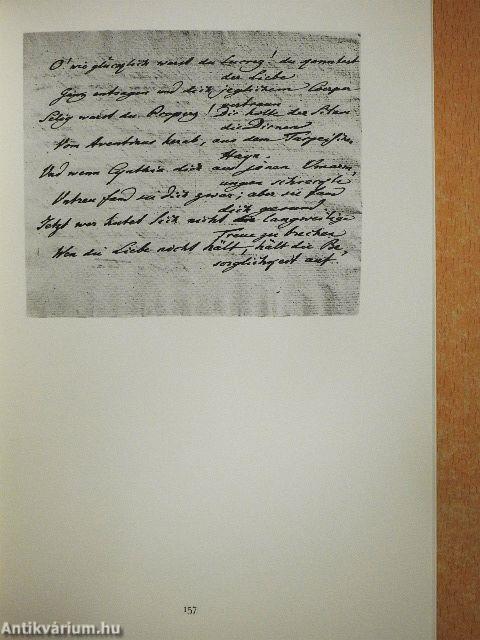 O! wie glücklich warst du Lucrez! du konntest
der Liebe
Ganz entsagen und dich jeglichem Coerper
vertrauen
Selig warst du Properz! Dir holte der Sclav
die Dirnen
Vom Aventinus herab, aus dem Tarpeischen
Hayn.
Und wenn Cynthia dich aus jenen Umarm
ungen schreckte
Untreu fand sie dich zwar; aber sie fand
dich gesund
Jetzt wer hütet sich nicht die langweilige
Treue zu brechen
Wen die Liebe nicht hält, hält die Be
sorglichkeit auf.
157
Antikvárium.hu